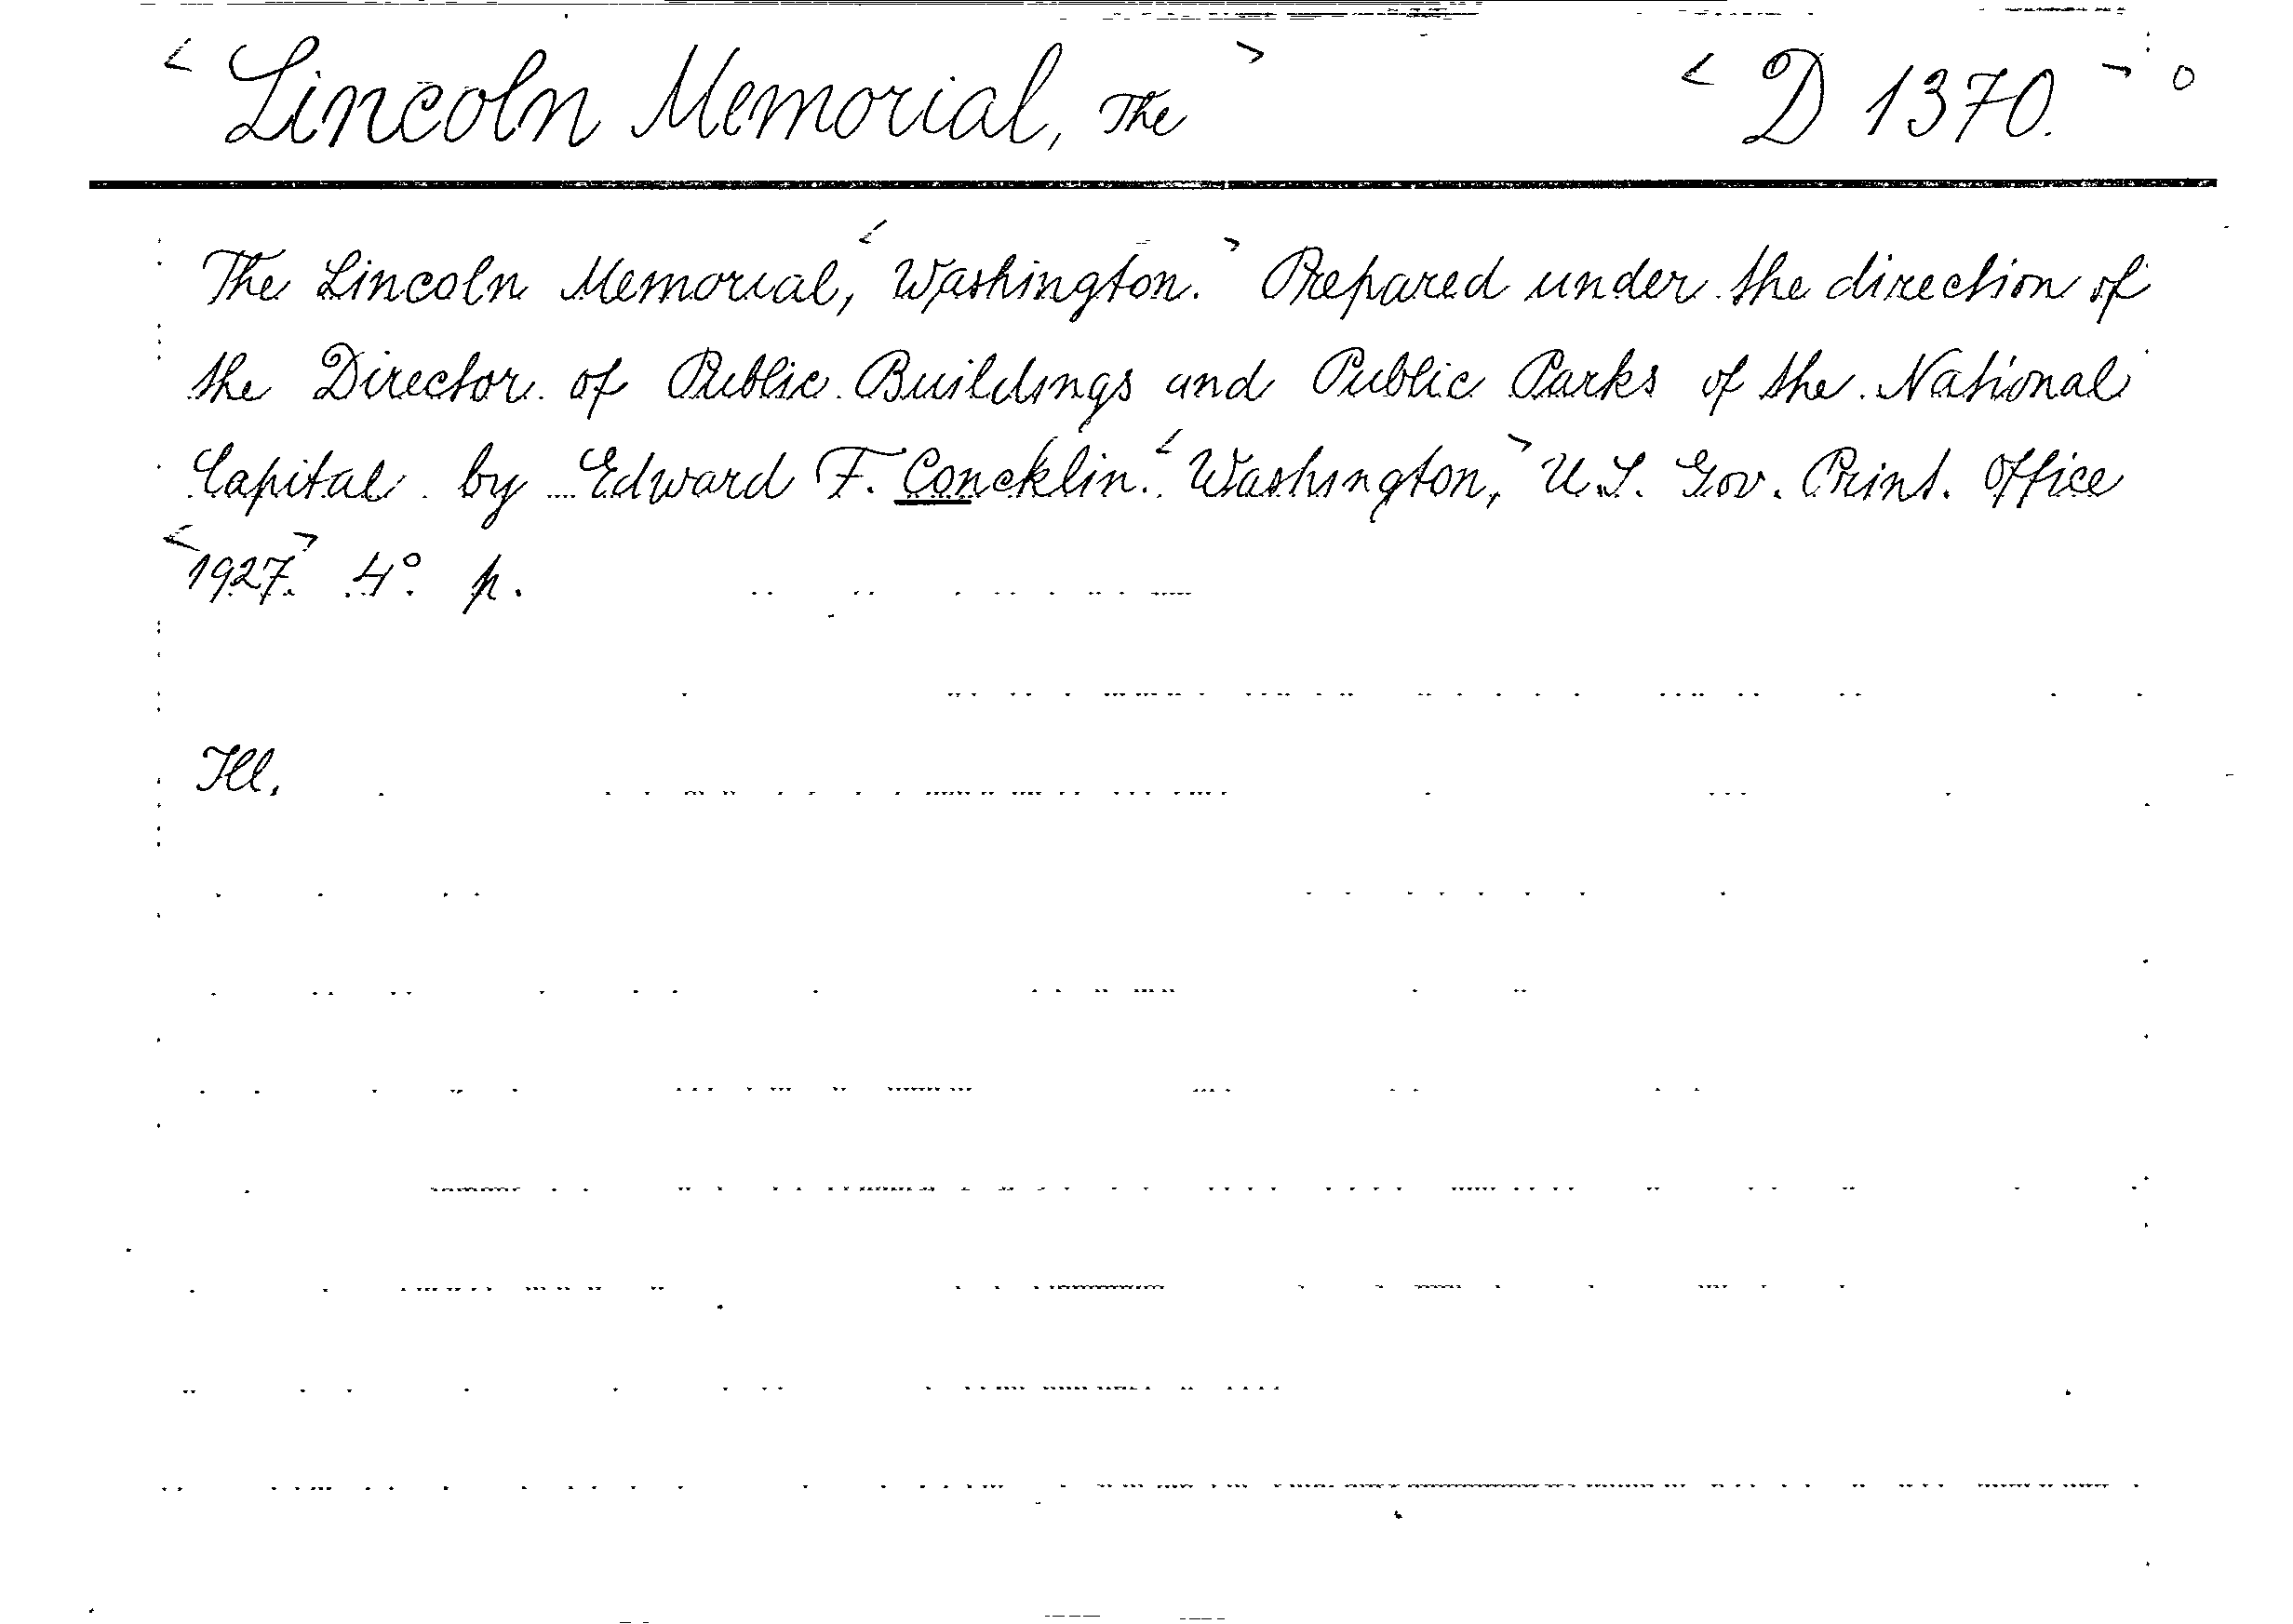 < Lincoln Memorial, The > < D 1370. > o
The Lincoln Memorial, < Washington. > Prepared under the direction of
the Director of Public Buildings and Public Parks of the National
Capital by Edward F. Concklin. < Washington, > U.S. Gov. Print. Office
< 1927. > 4° p.
Ill.